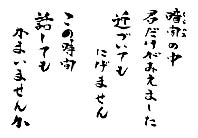 暗闇の中
君だけがみえました
近づいても
にげません
この時間
話しても
かまいませんか